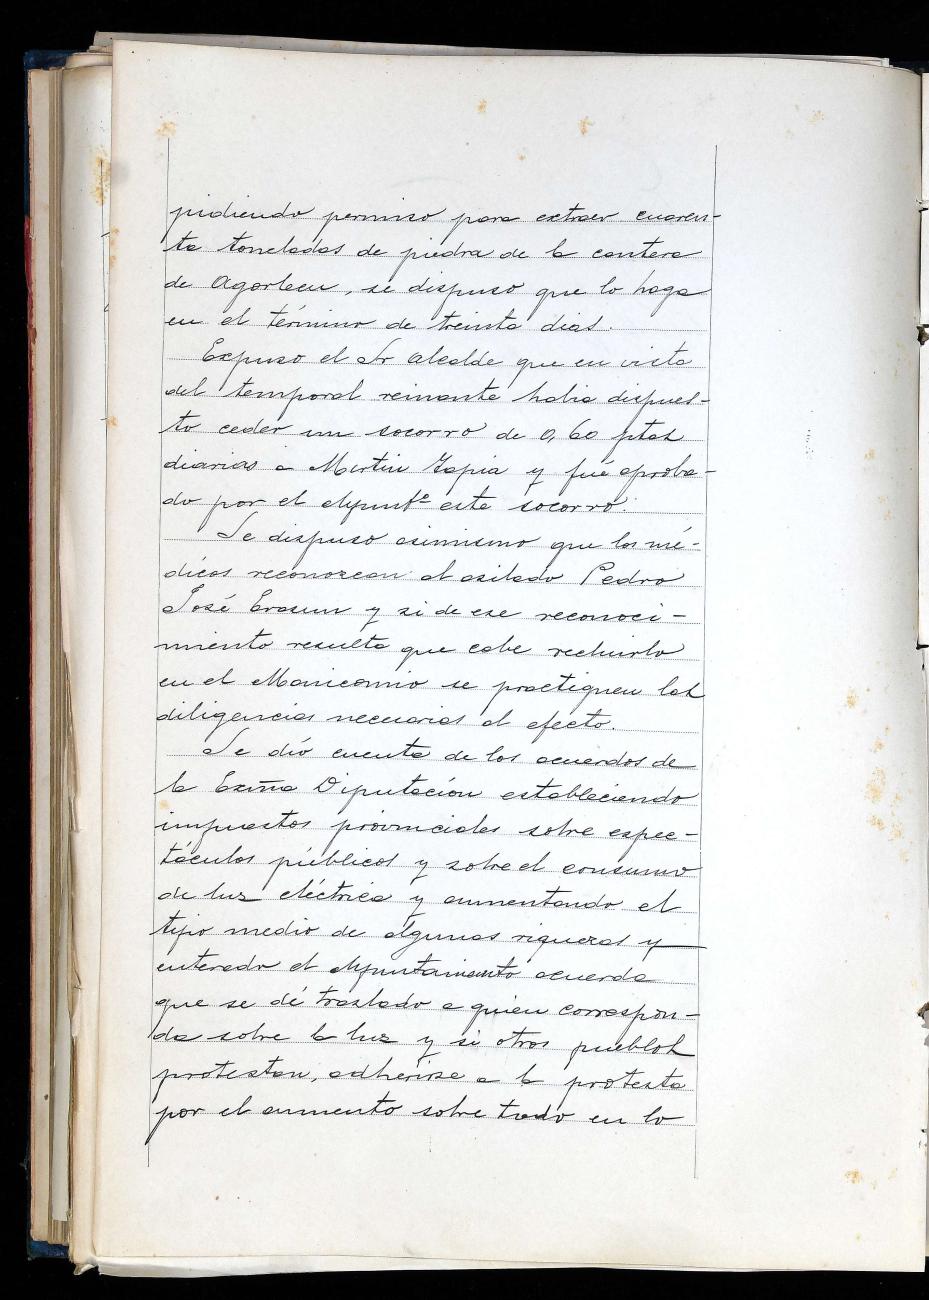 pidiendo permiso para extraer cuaren-
ta toneladas de piedra de la cantera
de Agorleen, se dispuso que lo haga
en el término de treinta dias.
Expuso el Sr Alcalde que en vista
del temporal reinante habia dispues-
to ceder un socorro de 0,60 ptas
diarias a Martin Tapia y fué aproba-
do por el Ayuntº este socorro.
Se dispuso asimismo que los mé-
dicos reconozcan al asilado Pedro
José Erasun y si de ese reconoci-
miento resulta que cabe recluirlo
en el Manicomio se practiquen las
diligencias necesarias al efecto.
Se dió cuenta de los acuerdos de
la Exma Diputación estableciendo
impuestos provinciales sobre espec-
táculos públicos y sobre el consumo
de luz eléctrica y aumentando el
tipo medio de algunas riquezas y
enterado el Ayuntamiento acuerda
que se dé traslado a quien correspon-
da sobre la luz y si otros pueblos
protestan, adherirse a la protesta
por el aumento sobre todo en lo